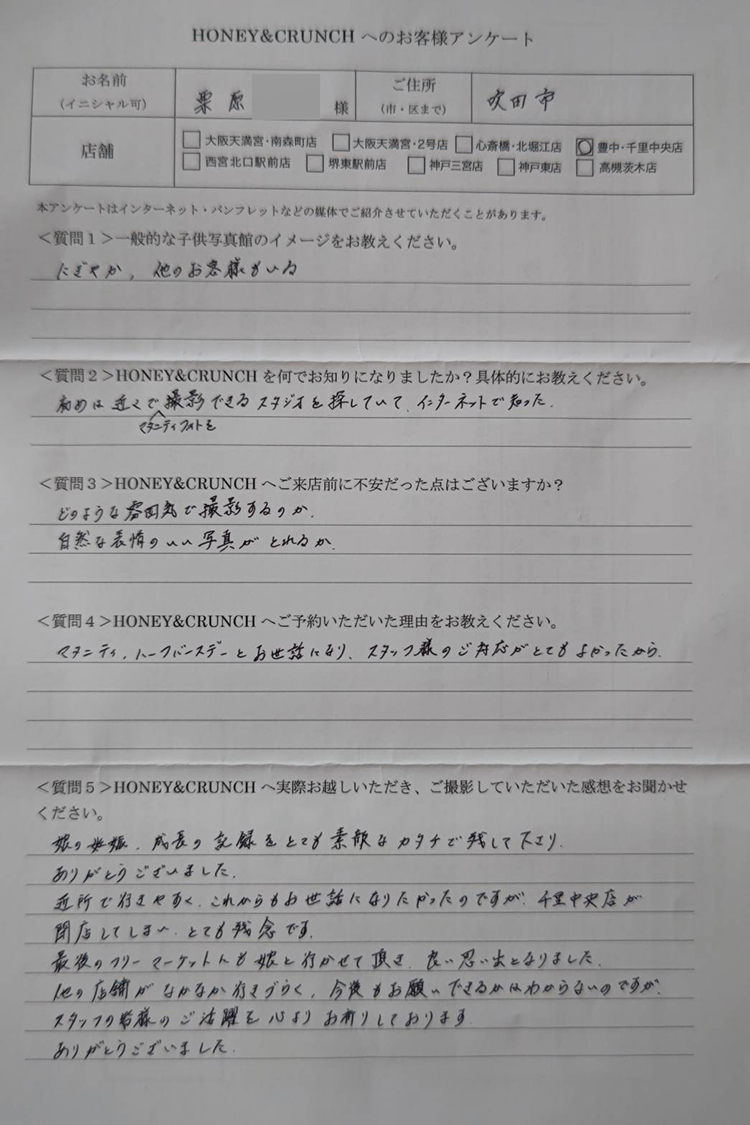 HONEY&CRUNCH へのお客様アンケート
お名前
(イニシャル可)
栗原 様
ご住所
(市・区まで)
吹田市
店舗
□大阪天満宮・南森町店 □大阪天満宮・2号店 □心斎橋・北堀江店 □豊中・千里中央店
□西宮北口駅前店 □堺東駅前店 □神戸三宮店 □神戸東店 □高槻茨木店
本アンケートはインターネット・パンフレットなどの媒体でご紹介させていただくことがあります。
<質問1>一般的な子供写真館のイメージをお教えください。
にぎやか、他のお客様もいる
<質問2>HONEY&CRUNCH を何でお知りになりましたか？具体的にお教えください。
初めは近くで撮影できるスタジオを探していて、インターネットで知った。
マタニティフォトを
<質問3>HONEY&CRUNCH へご来店前に不安だった点はございますか？
どのような雰囲気で撮影するのか。
自然な表情のいい写真がとれるか。
<質問4>HONEY&CRUNCH へご予約いただいた理由をお教えください。
マタニティ、ハーフバースデーとお世話になり、スタッフ様のご対応がとてもよかったから。
<質問5>HONEY&CRUNCH へ実際お越しいただき、ご撮影していただいた感想をお聞かせ
ください。
娘の妊娠、成長の記録をとても素敵なカタチで残して下さり、
ありがとうございました。
近所で行きやすく、これからもお世話になりたかったのですが、千里中央店が
閉店してしまい、とても残念です。
最後のフリーマーケットにも娘と行かせて頂き、良い思い出となりました。
他の店舗がなかなか行きづらく、今後もお願いできるかはわからないのですが、
スタッフの皆様のご活躍を心よりお祈りしております。
ありがとうございました。